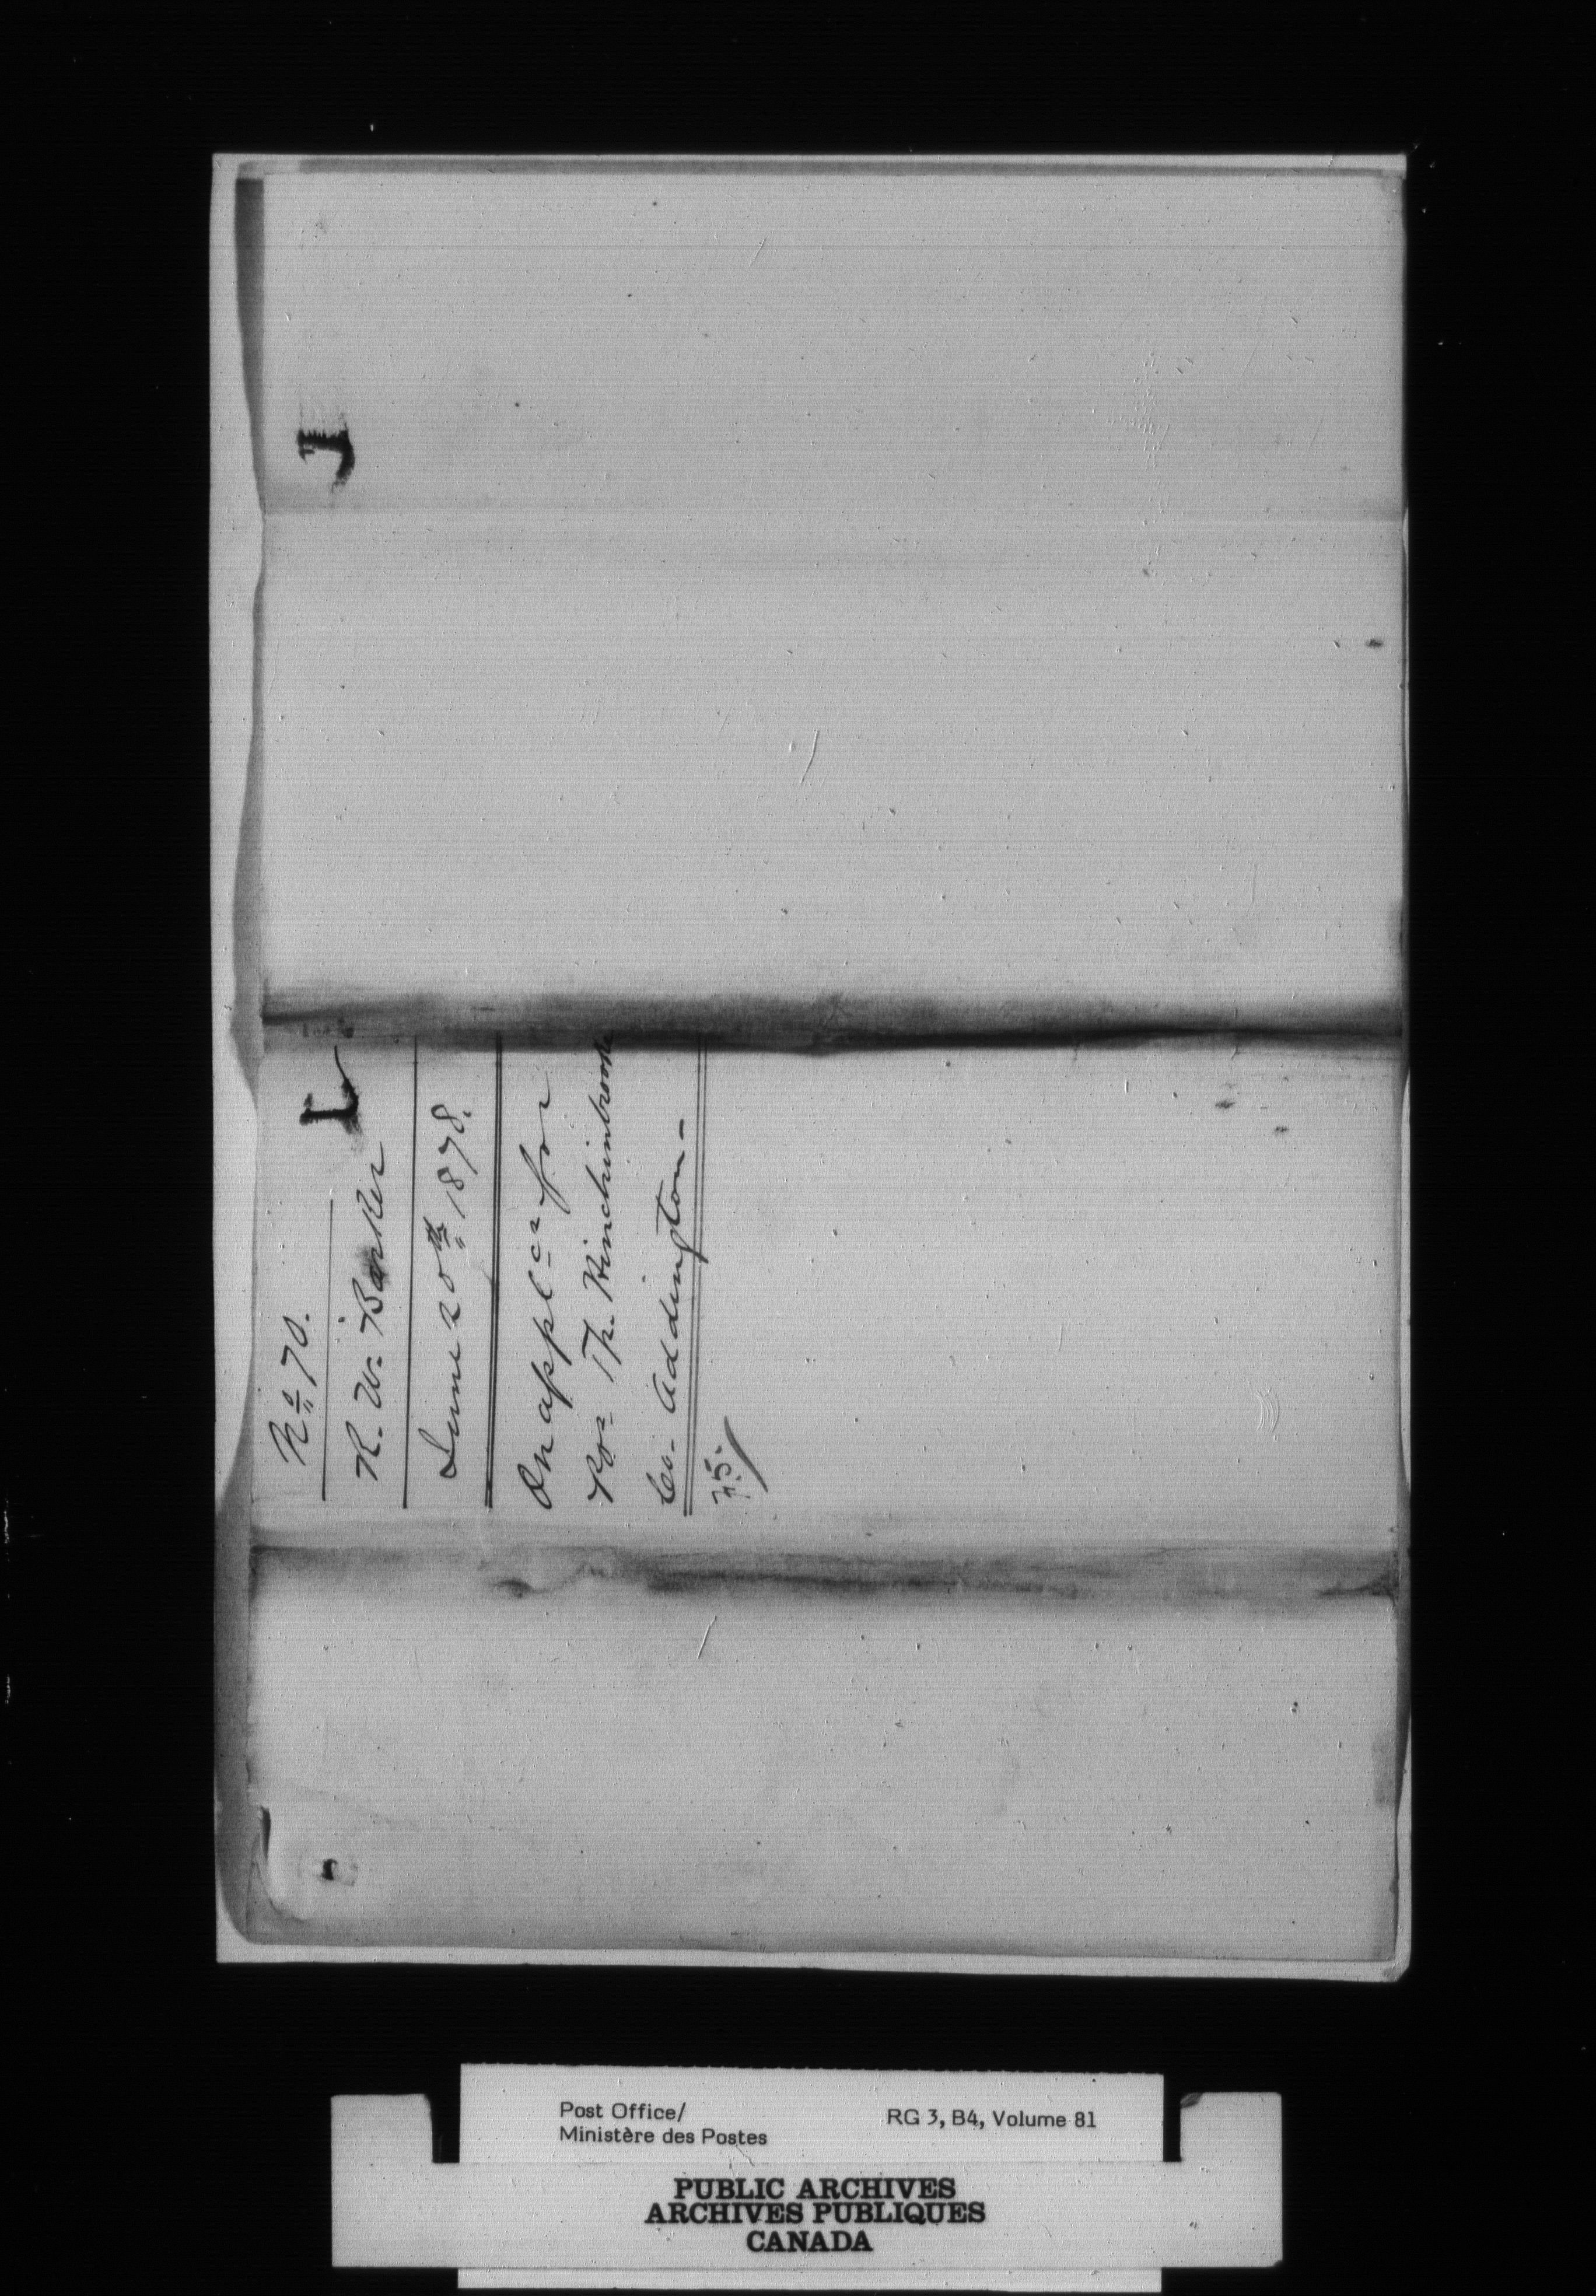 No 70.
R. W. Barker
June 20th 1878.
On applcn for
Po- Tp. Hinchinbrooke
Co. Addington-
Post Office/
Ministère des Postes
RG 3, B4, Volume 81
PUBLIC ARCHIVES
ARCHIVES PUBLIQUES
CANADA